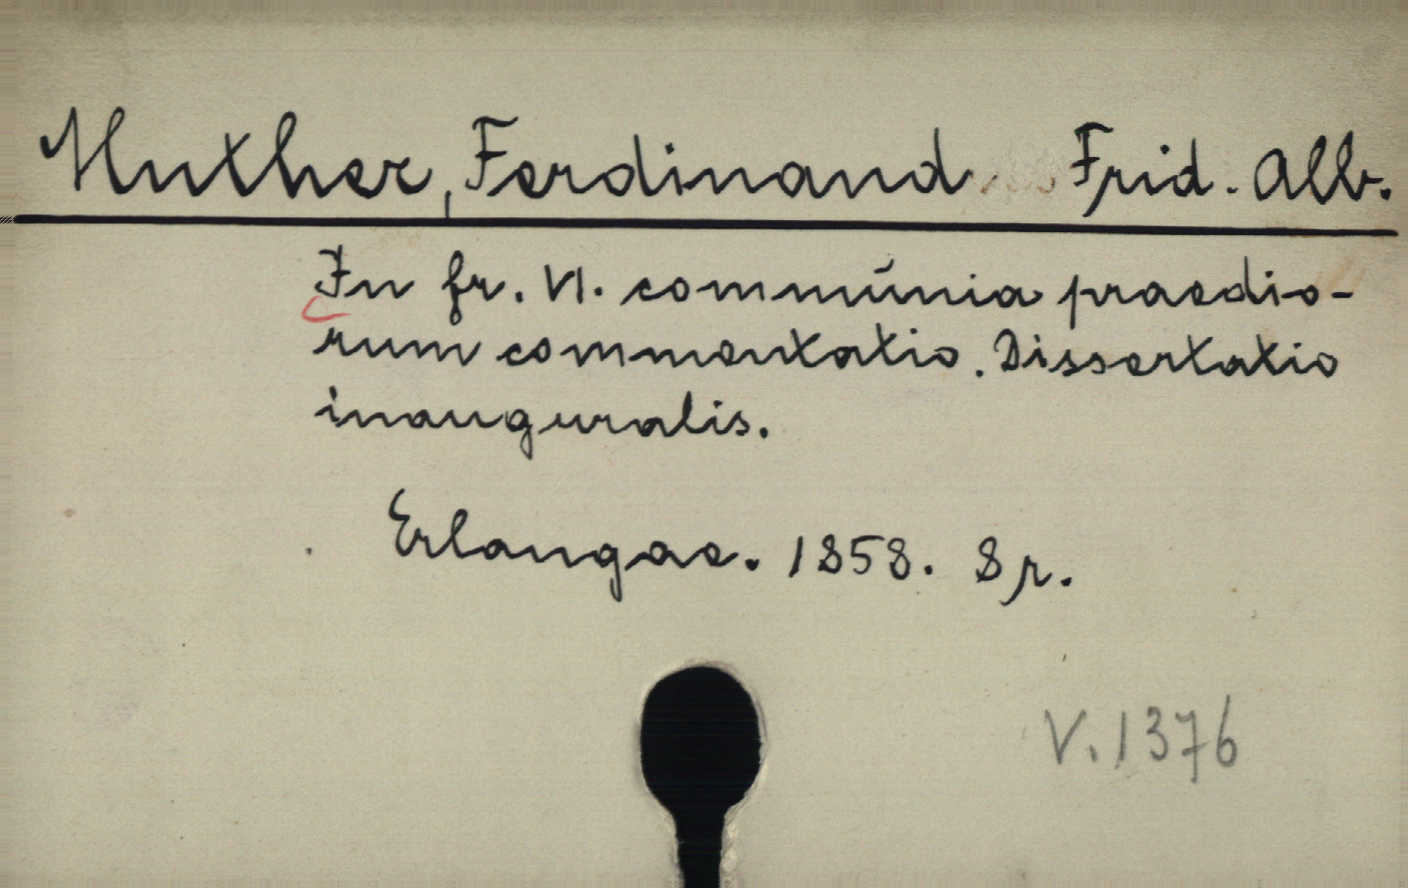 Muther, Ferdinand Frid. Alb.
In fr. VI. commúnia praedio-
rum commentatio. Dissertatio
inauguralis.
Erlangae. 1858. 8 r.
V. 1376